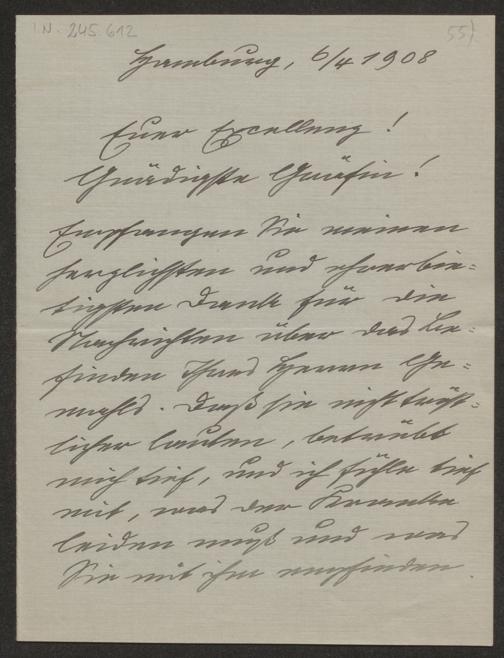 I.N. 245.612
55)
Hamburg, 6/4 1908
Euer Excellenz!
Gnädigste Gräfin!
Empfangen Sie meinen
herzlichsten und ehrerbie-
tigsten Dank für die
Nachrichten über das Be-
finden Ihres Herrn Ge-
mahls. Daß sie nicht tröst-
licher lauten, betrübt
mich tief, und ich fühle tief
mit, was der Kranke
leiden muß und was
Sie mit ihm empfinden.